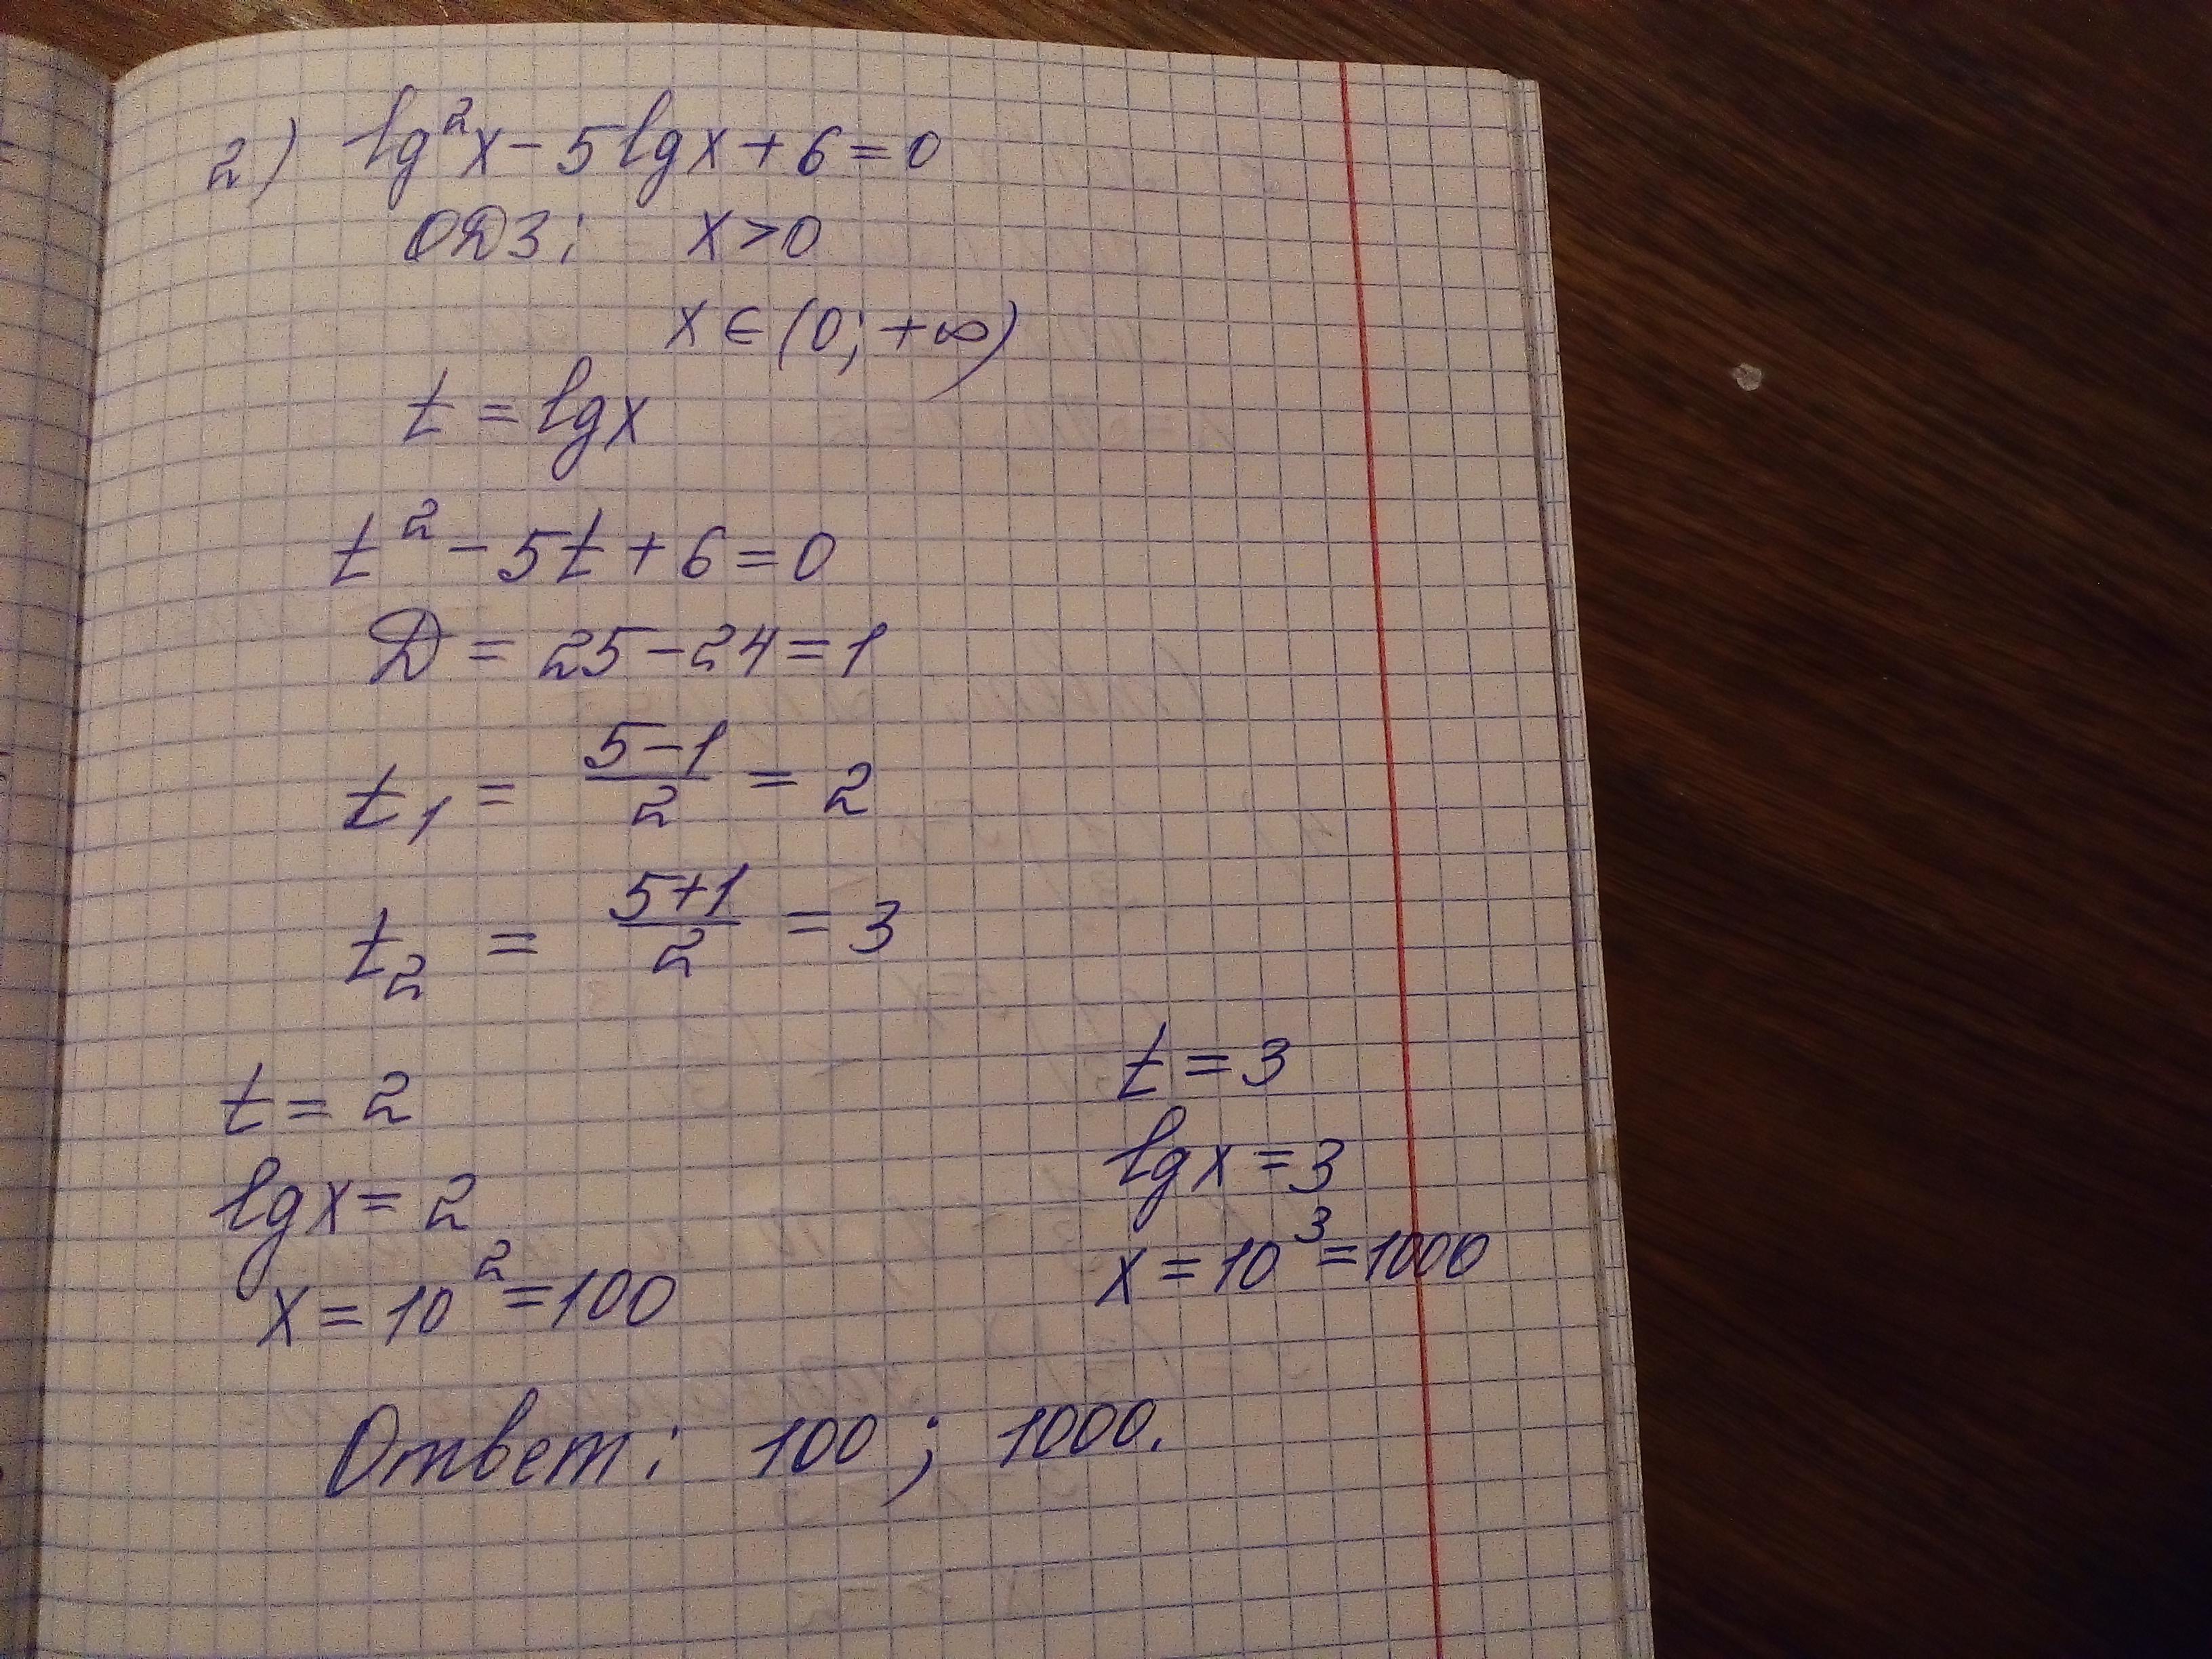 2) lg²x - 5lgx + 6 = 0
ОДЗ: x > 0
x ∈ (0; +∞)
t = lgx
t² - 5t + 6 = 0
D = 25 - 24 = 1
t₁ = (5-1)/2 = 2
t₂ = (5+1)/2 = 3
t = 2
lgx = 2
x = 10² = 100
t = 3
lgx = 3
x = 10³ = 1000
Ответ: 100; 1000.